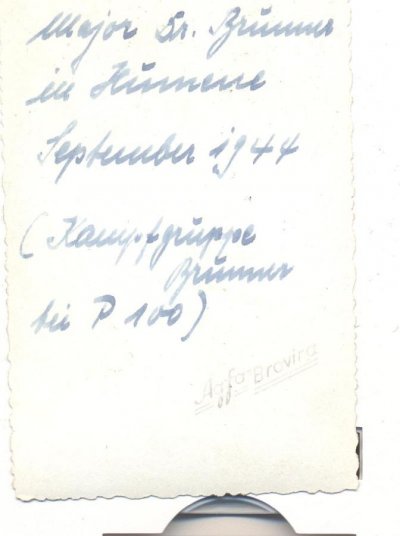 Major Dr. Brunner
in Humene
September 1944
(Kampfgruppe
Brunner
bei P 100)
Agfa Brovira